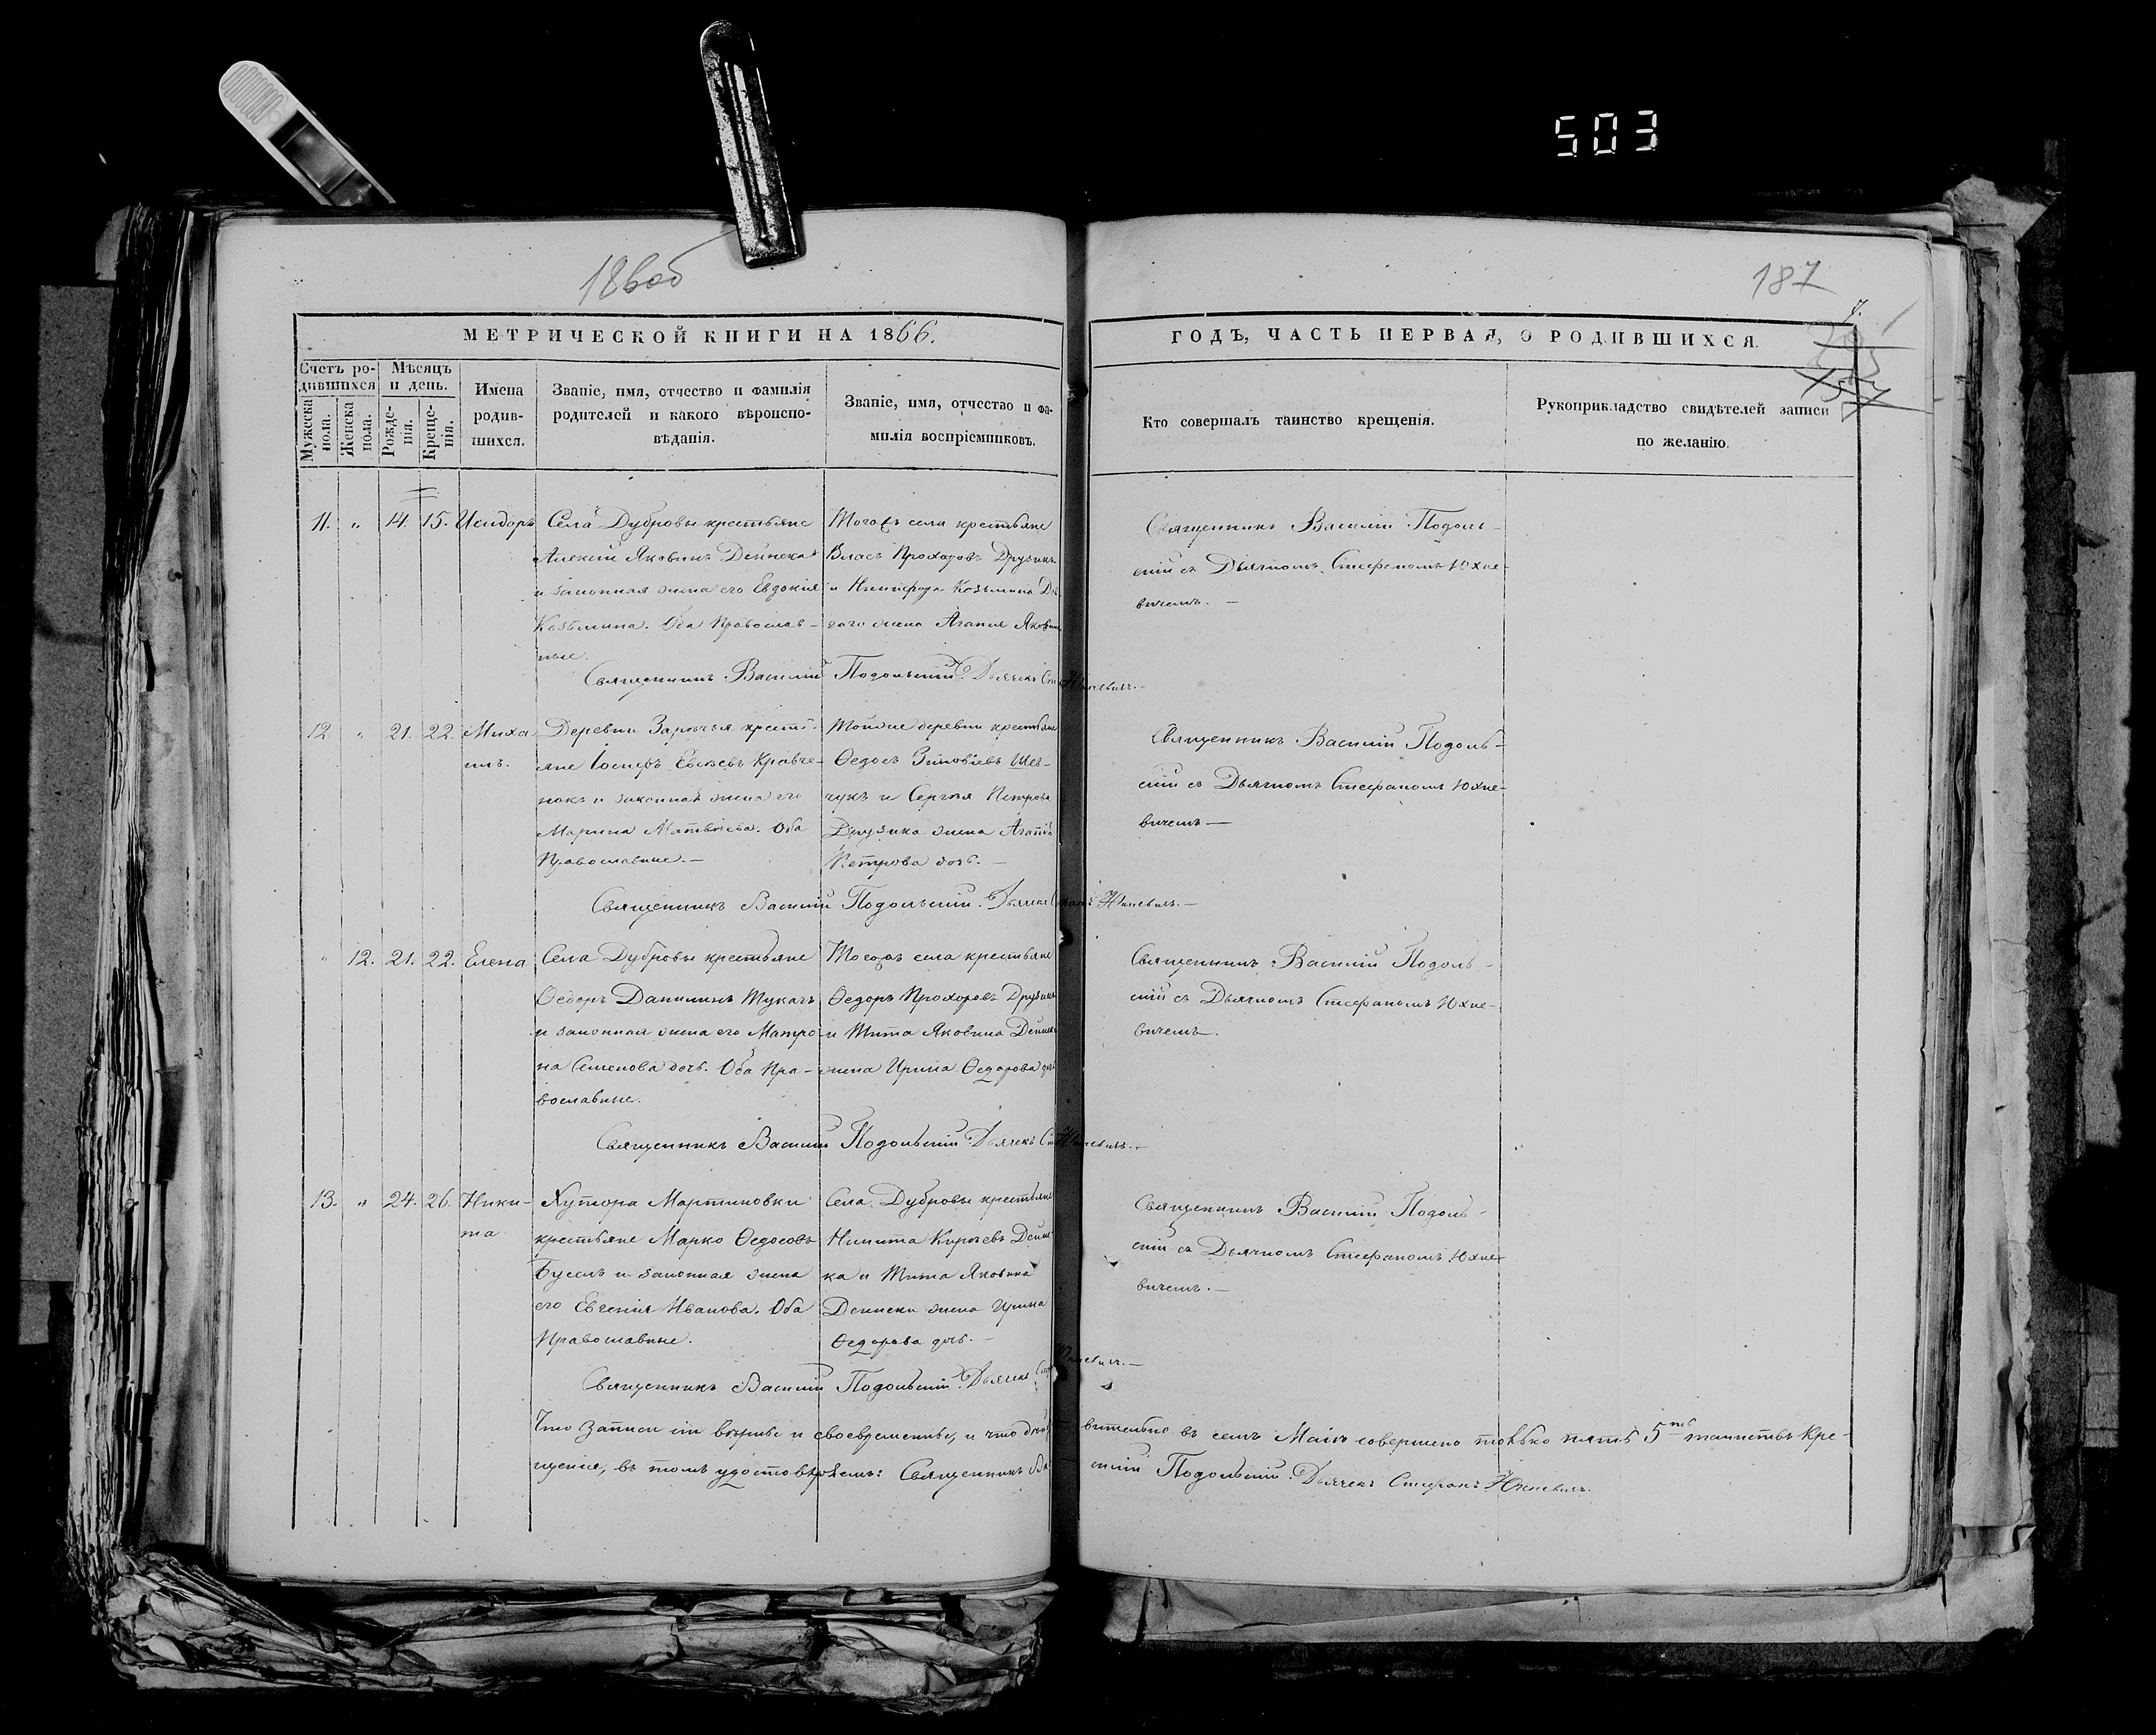 503
186об
187
7.
МЕТРИЧЕСКОЙ КНИГИ НА 1866.
ГОДЪ, ЧАСТЬ ПЕРВАЯ, О РОДИВШИХСЯ.
Счетъ родившихся
Мужеска пола.
Женска пола.
Мѣсяцъ и день.
Рожденія.
Крещенія.
Имена родившихся.
Званіе, имя, отчество и фамилія
родителей и какого вѣроиспо-
вѣданія.
Званіе, имя, отчество и фа-
милія воспріемниковъ.
Кто совершалъ таинство крещенія.
Рукоприкладство свидѣтелей записи
по желанію.
11. " 14. 15. Исидоръ
Села Дубровы крестьяне
Алексій Яковинъ Дейнека
и законная жена его Евдокія
Козьмина. Оба Православ-
ные.
Тогожъ села крестьяне
Власъ Прохоровъ Друзикъ
и Никифора Козьмина
жена Агапія Яковин
Священникъ Василій Подольскій. Дьячекъ Юхневичъ.—
Священникъ Василій Подоль-
скій съ Дьячкомъ Стефаномъ Юхне-
вичемъ.—
12 " 21. 22. Миха
илъ.
Деревни Зарѣчья кресть-
яне Іосифъ Евсѣевъ Кравче-
нокъ и законная жена его
Марина Матвѣева. Оба
Православные.—
Тойже деревни крестьяне
Ѳедосъ Зиновіевъ Шев-
чукъ и Сергѣя Петрова
Друзика жена Агапія
Петрова дочь.—
Священникъ Василій Подольскій. Дьячекъ Юхневичъ.—
Священникъ Василій Подоль-
скій съ Дьячкомъ Стефаномъ Юхне-
вичемъ—
" 12. 21. 22. Елена
Села Дубровы крестьяне
Ѳедоръ Данилинъ Тукачъ
и законная жена его Матро-
на Семенова дочь. Оба Пра-
вославные.
Тогожъ села крестьяне
Ѳедоръ Прохоровъ Друзикъ
и Тита Яковина Дейнек
жена Ирина Ѳедорова дочь
Священникъ Василій Подольскій. Дьячекъ Юхневичъ.—
Священникъ Василій Подоль-
скій съ Дьячкомъ Стефаномъ Юхне-
вичемъ.
13. " 24. 26. Ники-
та
Хутора Мартиновки
крестьяне Марко Ѳедосовъ
Бусель и законная жена
его Евгенія Иванова. Оба
Православные.
Села Дубровы крестьяне
Никита Кирѣевъ Дейне-
ка и Тита Яковина
Дейнеки жена Ирина
Ѳедорова дочь.—
Священникъ Василій Подольскій. Дьячекъ Юхневичъ.—
Священникъ Василій Подоль-
скій съ Дьячкомъ Стефаномъ Юхне-
вичемъ.—
Что записи сіи вѣрны и своевременны, и что дѣйствительно въ семъ Маіѣ совершено только пять 5ть таинствъ Кре-
щенія, въ томъ удостовѣряемъ: Священникъ Василій Подольскій. Дьячекъ Стефанъ Юхневичъ.